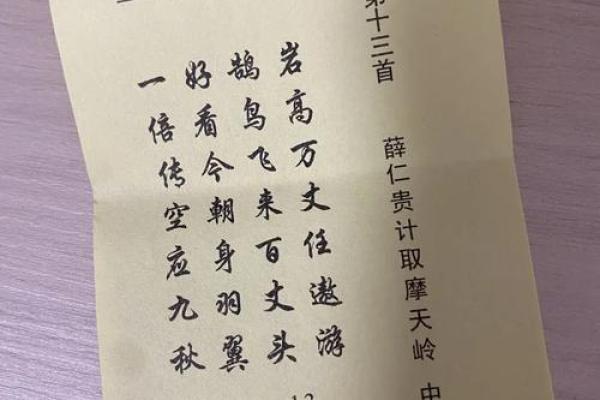 第十三首 薛仁贵计取摩天岭 中
岩高万丈任遨游
鹄鸟飞来百丈头
好看今朝身羽翼
一倍传空应九秋